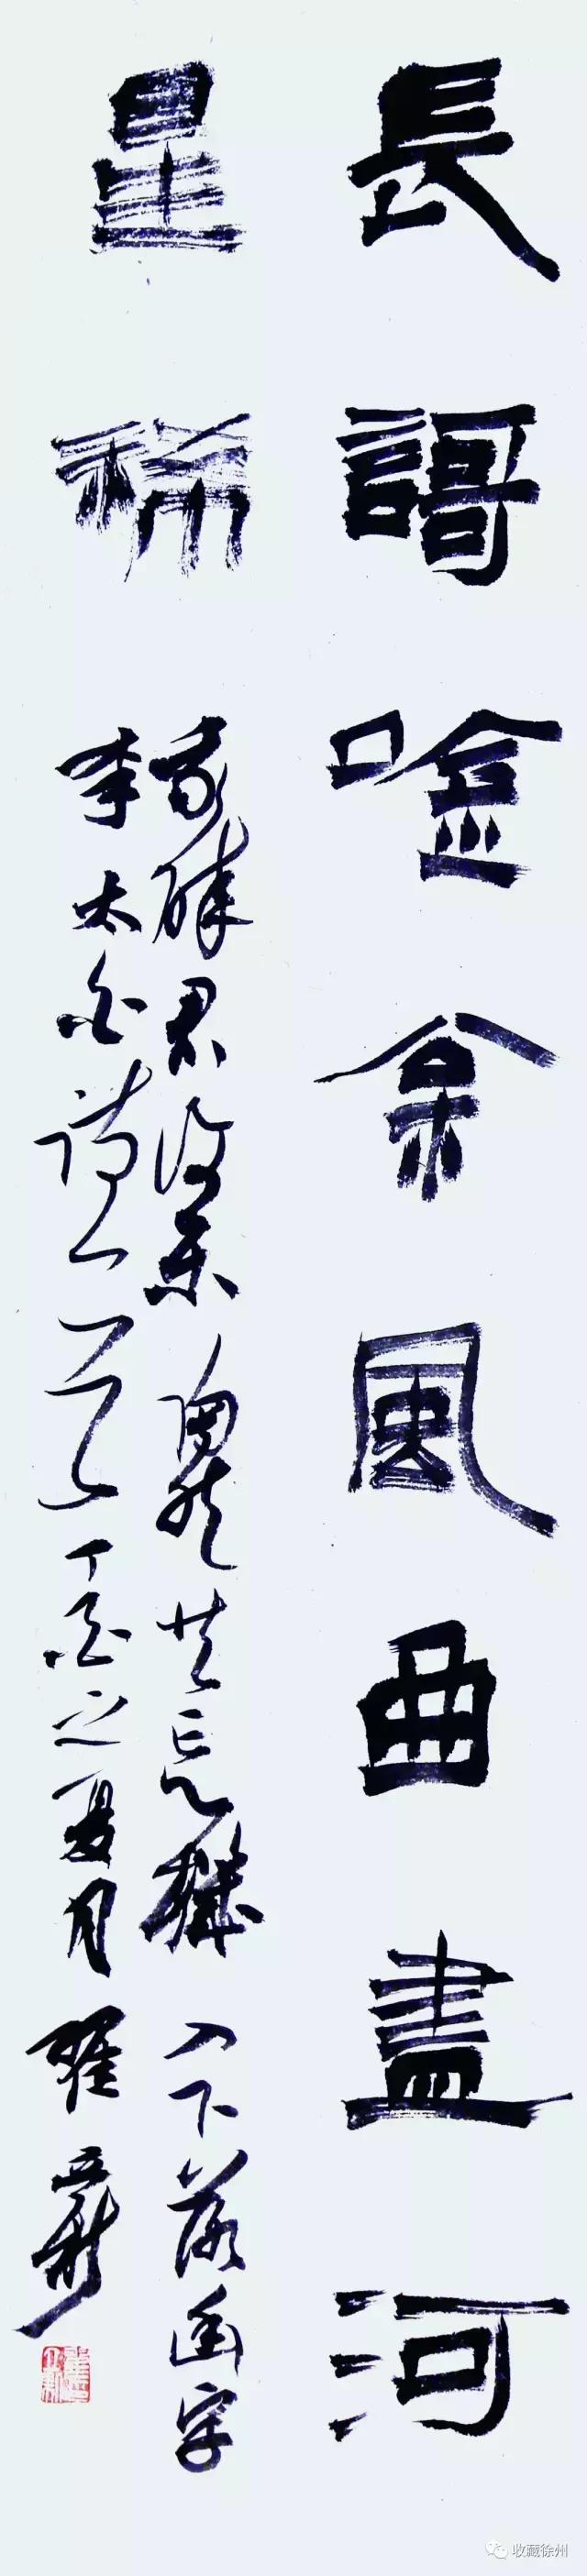 長謌唫枀風曲盡河
星稀
我醉君復樂陶然共忘機入下落幽字
李太白詩一首丁酉之夏月
收藏徐州